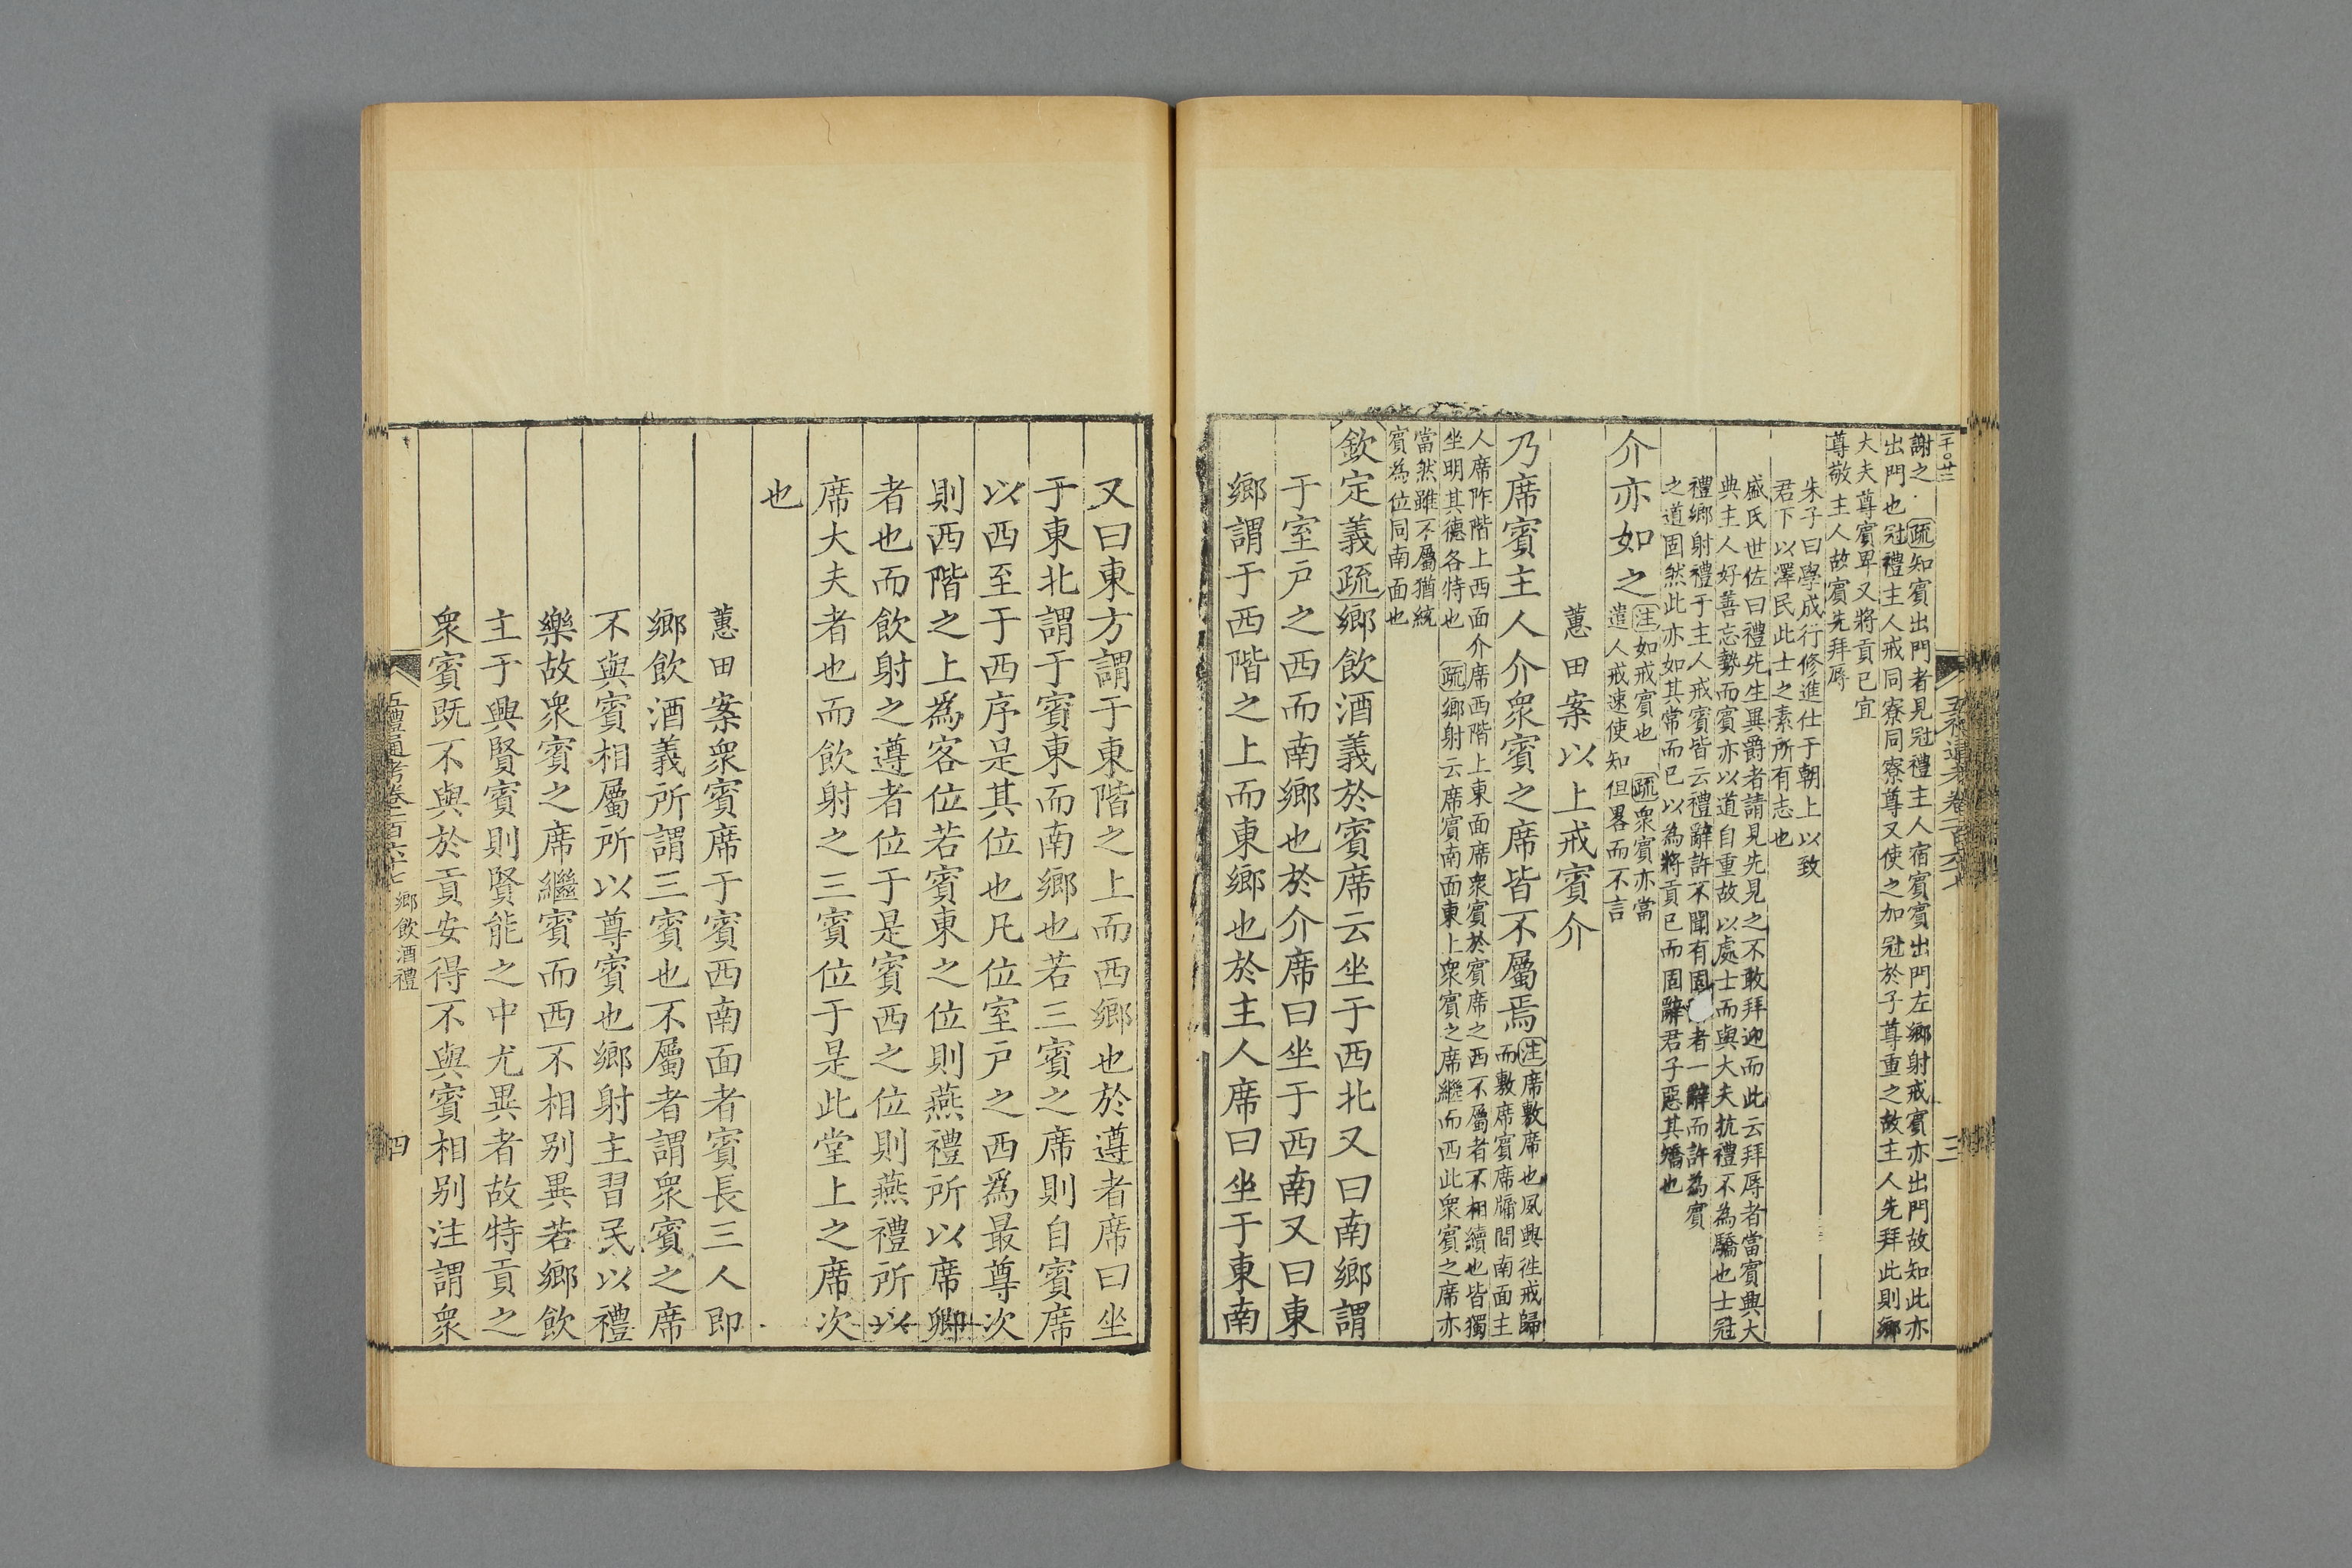 謝之
出門也
疏知賓出門者見冠禮主人宿賓賓出門左鄉射戒賓亦出門故知此亦
冠禮主人戒同寮同寮尊又使之加冠於子尊重之故主人先拜此則鄉
大夫尊賓卑又將貢已宜
尊敬主人故賓先拜辱
朱子曰學成行修進仕于朝上以致
君下以澤民此士之素所有志也
盛氏世佐曰禮先生異爵者請見先見之不敢拜迎而此云拜辱者當賓興大
典主人好善忘勢而賓亦以道自重故以處士而與大夫抗禮不為驕也士冠
禮鄉射禮于主人戒賓皆云禮辭許不聞有固者一辭而許為賓
之道固然此亦如其常而已以為將貢已而固辭君子惡其矯也
介亦如之
注如戒賓也
疏眾賓亦當
遣人戒速使知但畧而不言
蕙田案以上戒賓介
乃席賓主人介衆賓之席皆不屬焉
注席敷席也夙興往戒歸
而敷席賓席牖間南面主
人席阼階上西面介席西階上東面席衆賓於賓席之西不屬者不相續也皆獨
坐明其德各特也
疏鄉射云席賓南面東上衆賓之席繼而西此衆賓之席亦
當然雖不屬猶統
賓為位同南面也
欽定義疏鄉飲酒義於賓席云坐于西北又曰南鄉謂
于室戶之西而南鄉也於介席曰坐于西南又曰東
鄉謂于西階之上而東鄉也於主人席曰坐于東南
又曰東方謂于東階之上而西鄉也於遵者席曰坐
于東北謂于賓東而南鄉也若三賓之席則自賓席
以西至于西序是其位也凡位室戶之西為最尊次
則西階之上為客位若賓東之位則燕禮所以席卿
者也而飲射之遵者位于是賓西之位則燕禮所以
席大夫者也而飲射之三賓位于是此堂上之席次
也
蕙田案衆賓席于賓西南面者賓長三人即
鄉飲酒義所謂三賓也不屬者謂衆賓之席
不與賓相屬所以尊賓也鄉射主習民以禮
樂故衆賓之席繼賓而西不相別異若鄉飲
主于興賢賓則賢能之中尤異者故特貢之
衆賓既不與於貢安得不與賓相別注謂衆
五禮通考卷一百六十七
鄉飲酒禮
四